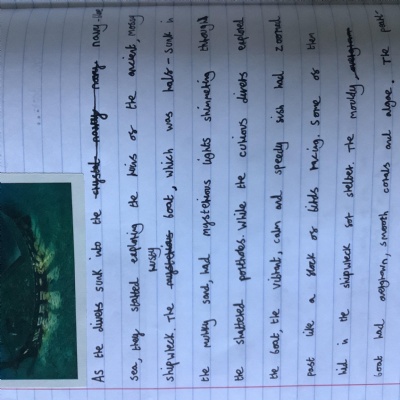 As the divers sunk into the crystal navy navy navy
sea, they started exploring the ruins of the ancient, mossy
rusty
shipwreck. The mysterious boat, which was half-sunk
the murky sand, had mysterious lights shimmering through
the shattered portholes. While the curious divers explored
the boat, the vibrant, calm and speedy fish had zoomed
past like a flock of birds racing. Some of them
hid in the shipwreck for shelter. The mouldy
boat had overgrown, smooth corals and algae. The port-